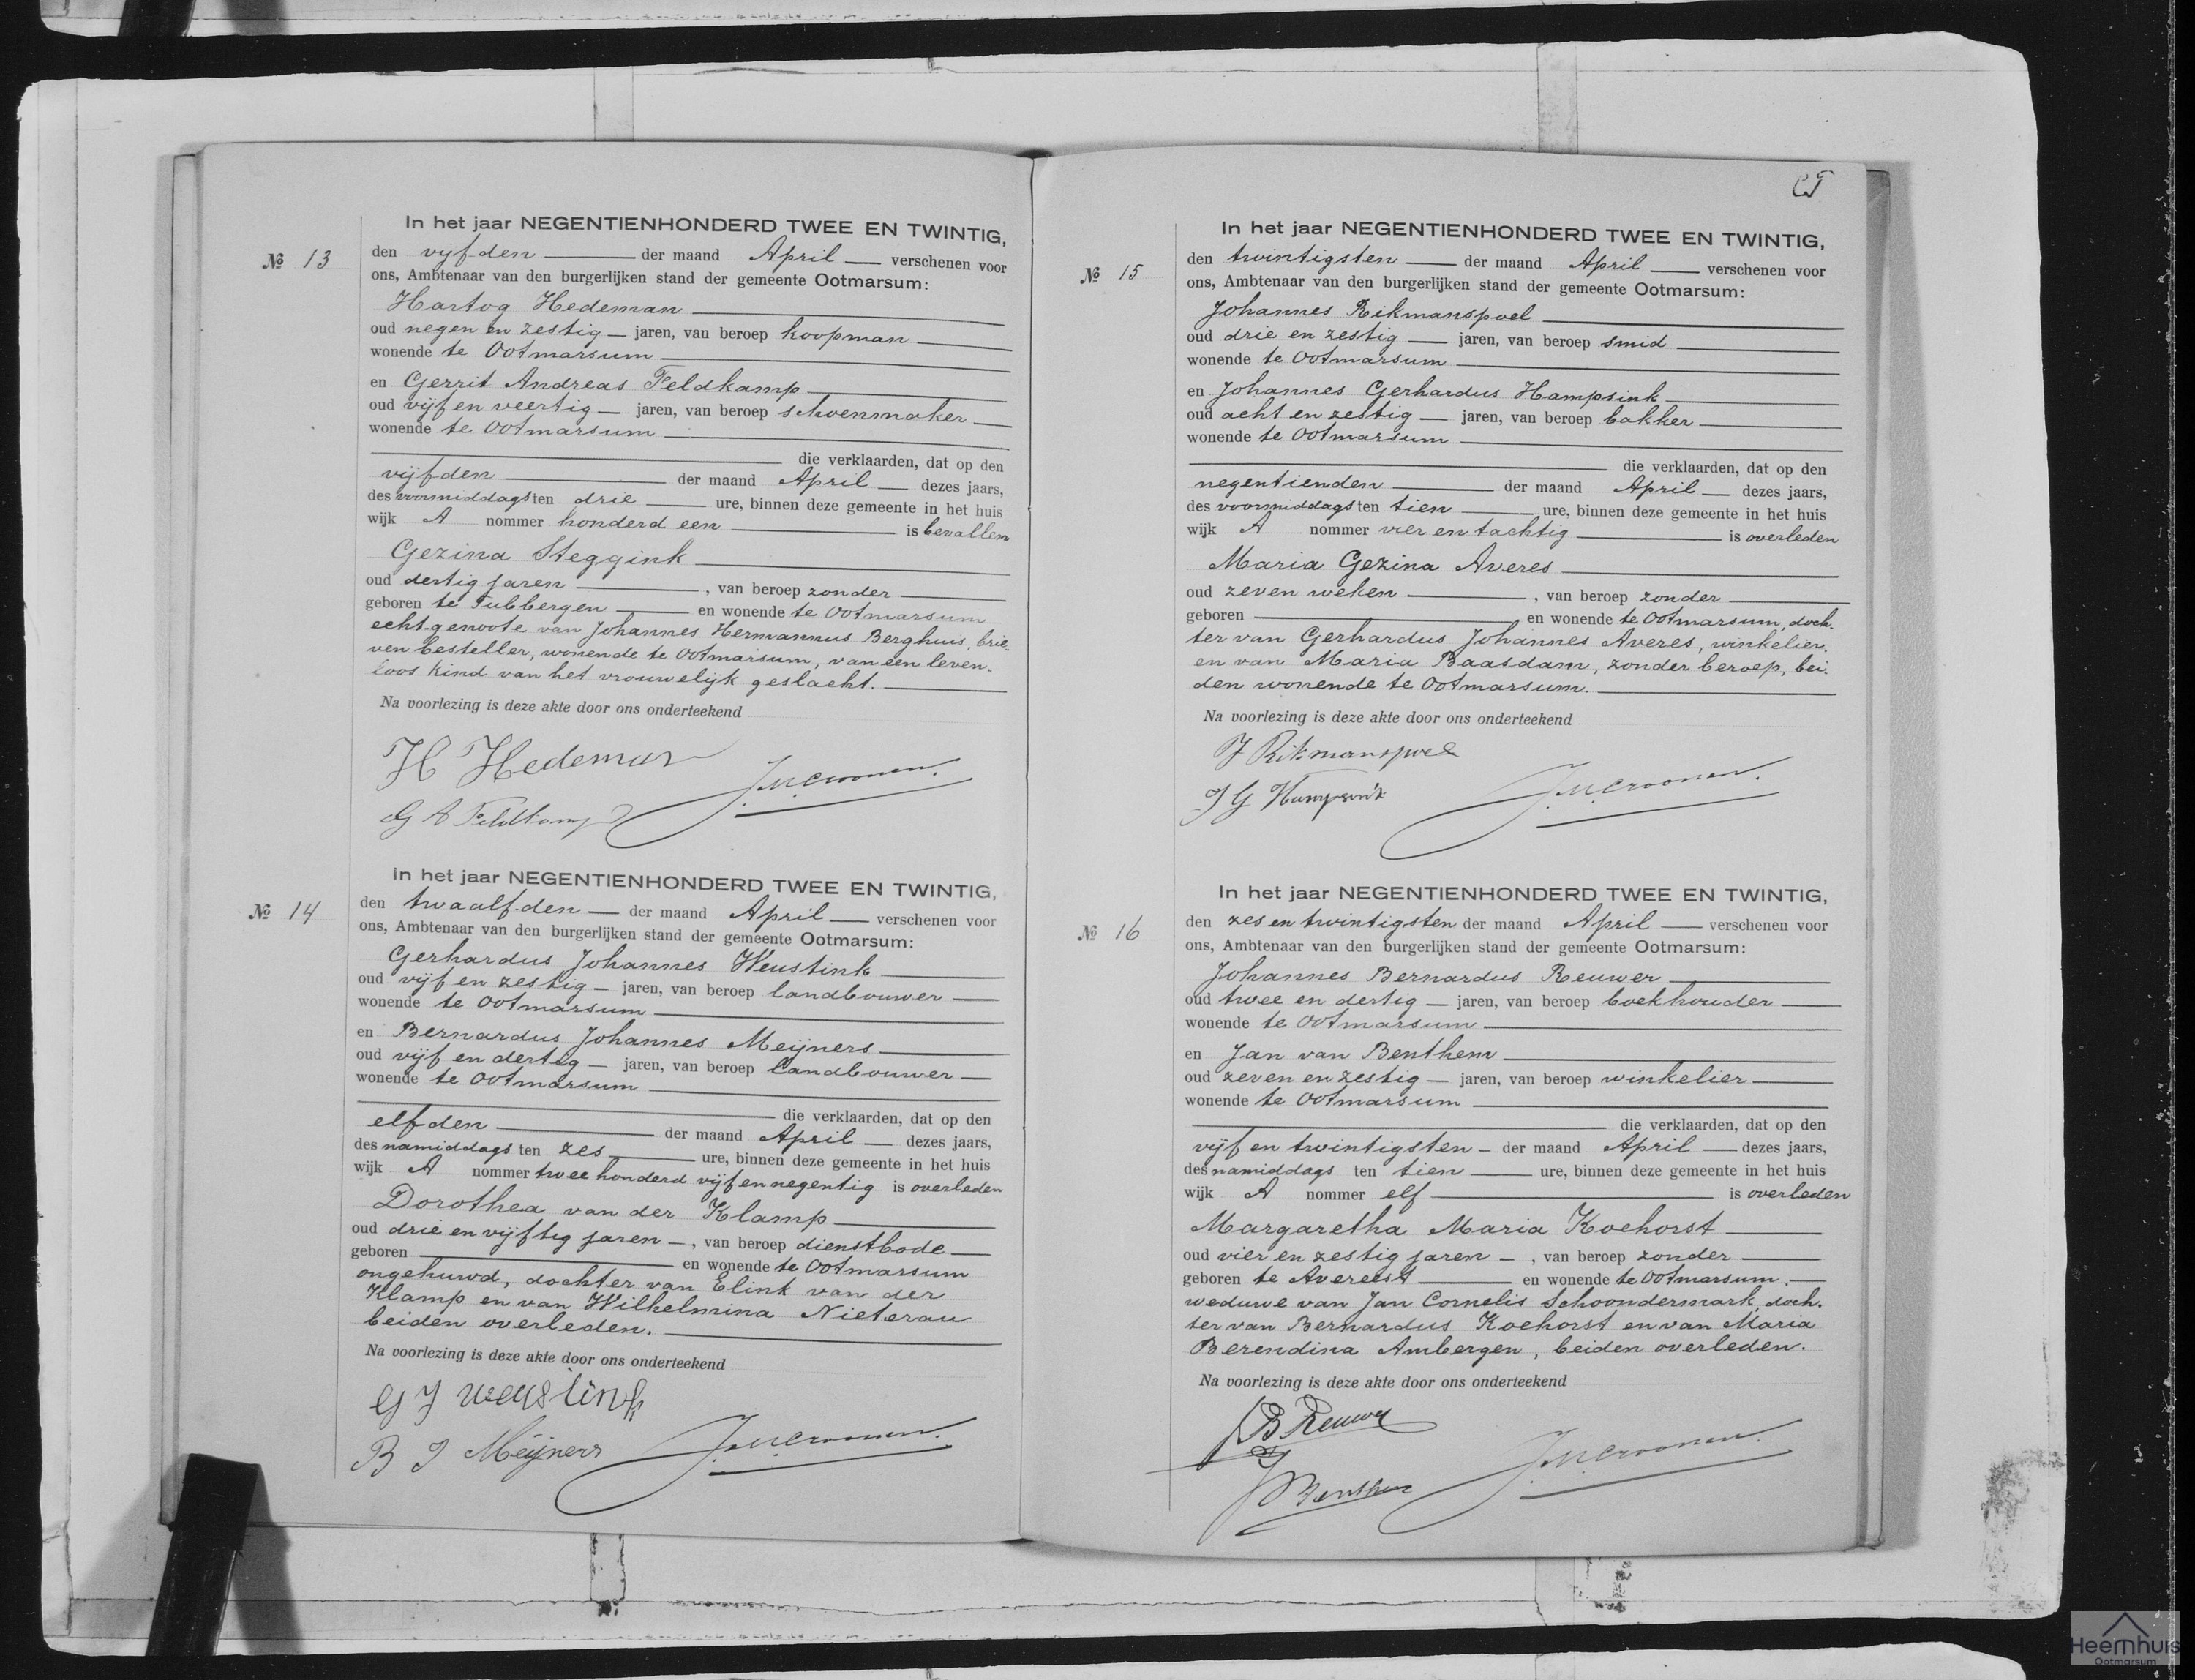 In het jaar NEGENTIENHONDERD TWEE EN TWINTIG,
№ 13
den vijfden der maand April verschenen voor
ons, Ambtenaar van den burgerlijken stand der gemeente Ootmarsum:
Hartog Hedeman
oud negen en zestig jaren, van beroep koopman
wonende te Ootmarsum
en Gerrit Andreas Feldkamp
oud vijf en veertig jaren, van beroep schoenmaker
wonende te Ootmarsum
die verklaarden, dat op den
vijfden der maand April dezes jaars,
des voormiddags ten drie ure, binnen deze gemeente in het huis
wijk A nommer honderd een is bevallen
Gezina Steggink
oud dertig jaren, van beroep zonder
geboren te Tubbergen en wonende te Ootmarsum
echtgenoote van Johannes Hermannus Berghuis, brie-
ven besteller, wonende te Ootmarsum, van een leven-
loos kind van het vrouwelijk geslacht.
Na voorlezing is deze akte door ons onderteekend
H Hedeman
J.M.Croonen.
G A Feldkamp
In het jaar NEGENTIENHONDERD TWEE EN TWINTIG,
№ 14
den twaalfden der maand April verschenen voor
ons, Ambtenaar van den burgerlijken stand der gemeente Ootmarsum:
Gerhardus Johannes Weustink
oud vijf en zestig jaren, van beroep landbouwer
wonende te Ootmarsum
en Bernardus Johannes Meijners
oud vijf en dertig jaren, van beroep landbouwer
wonende te Ootmarsum
die verklaarden, dat op den
elfden der maand April dezes jaars,
des namiddags ten zes ure, binnen deze gemeente in het huis
wijk A nommer twee honderd vijf en negentig is overleden
Dorothea van der Klamp
oud drie en vijftig jaren, van beroep dienstbode
geboren en wonende te Ootmarsum
ongehuwd, dochter van Elink van der
Klamp en van Wilhelmina Nieterau
beiden overleden.
Na voorlezing is deze akte door ons onderteekend
G J Weustink
B J Meijners
J.M.Croonen.
In het jaar NEGENTIENHONDERD TWEE EN TWINTIG,
№ 15
den twintigsten der maand April verschenen voor
ons, Ambtenaar van den burgerlijken stand der gemeente Ootmarsum:
Johannes Rikmanspoel
oud drie en zestig jaren, van beroep smid
wonende te Ootmarsum
en Johannes Gerhardus Hampsink
oud acht en zestig jaren, van beroep bakker
wonende te Ootmarsum
die verklaarden, dat op den
negentienden der maand April dezes jaars,
des voormiddags ten tien ure, binnen deze gemeente in het huis
wijk A nommer vier en tachtig is overleden
Maria Gezina Averes
oud zeven weken, van beroep zonder
geboren en wonende te Ootmarsum, doch-
ter van Gerhardus Johannes Averes, winkelier,
en van Maria Baasdam, zonder beroep, bei-
den wonende te Ootmarsum.
Na voorlezing is deze akte door ons onderteekend
J Rikmanspoel
J G Hampsink
J.M.Croonen.
In het jaar NEGENTIENHONDERD TWEE EN TWINTIG,
№ 16
den zes en twintigsten der maand April verschenen voor
ons, Ambtenaar van den burgerlijken stand der gemeente Ootmarsum:
Johannes Bernardus Reuwer
oud twee en dertig jaren, van beroep boekhouder
wonende te Ootmarsum
en Jan van Benthem
oud zeven en zestig jaren, van beroep winkelier
wonende te Ootmarsum
die verklaarden, dat op den
vijf en twintigsten der maand April dezes jaars,
des namiddags ten tien ure, binnen deze gemeente in het huis
wijk A nommer elf is overleden
Margaretha Maria Koehorst
oud vier en zestig jaren, van beroep zonder
geboren te Avereest en wonende te Ootmarsum,
weduwe van Jan Cornelis Schoondermark, doch-
ter van Bernardus Koehorst en van Maria
Berendina Ambergen, beiden overleden.
Na voorlezing is deze akte door ons onderteekend
JB Reuwer
J v Benthem
J.M.Croonen.
Heemhuis
Ootmarsum